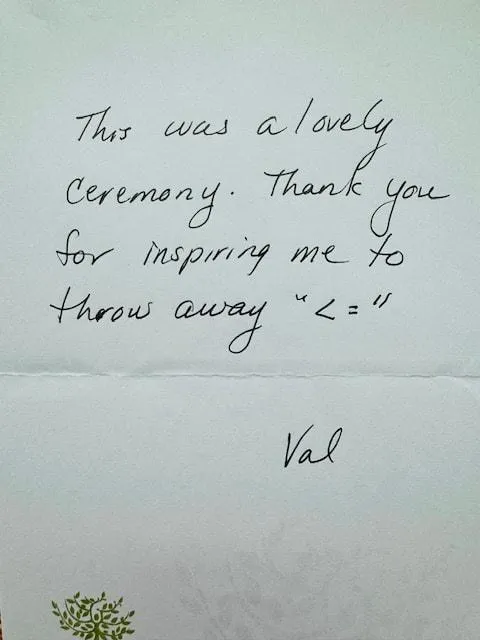 This was a lovely
ceremony. Thank you
for inspiring me to
throw away "<="
Val